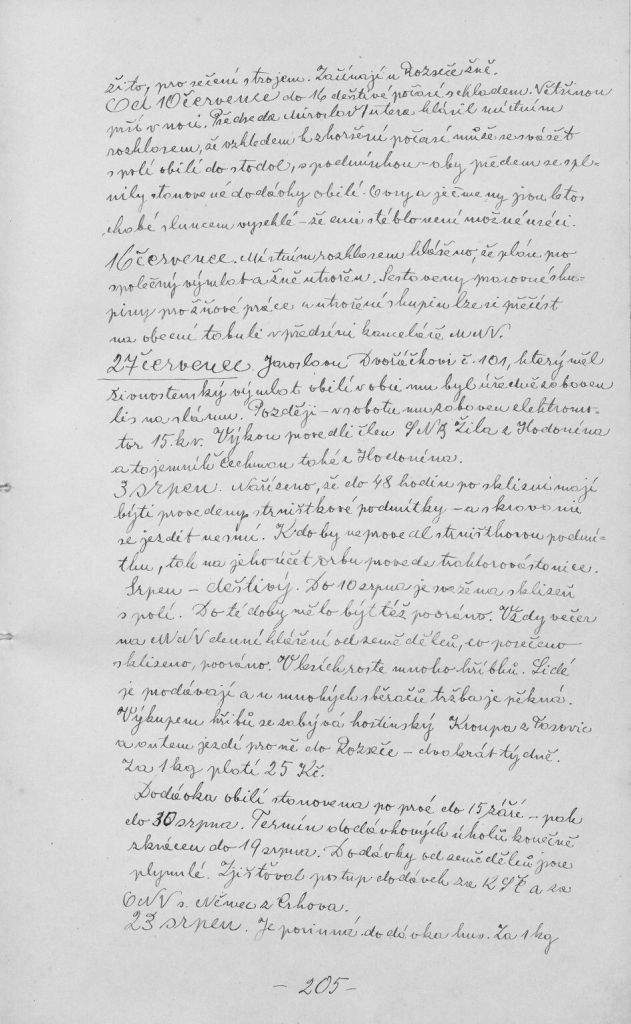 žito, pro sečení strojem. Začínají u Rozseče žně.
Od 10 července do 16 deštivé počasí s chladem. Většinou
prší v noci. Předseda Miroslav hlásil místním
rozhlasem, že vzhledem k zhoršení počasí může se svážet
s polí obilí do stodol, s podmínkou – aby předem se spl-
nily stanovené dodávky obilí. Ovsy a ječmeny jsou letos
chabé sluncem vyschlé – že ani stéblo není možné uséci.
16 července. Místním rozhlasem hlášeno, že plán pro
společný výmlat a žně utvořen. Sestaveny pracovné sku-
piny pro žňové práce a utvoření skupin lze si přečíst
na obecní tabuli v předsíni kanceláře MNV.
27 červenec. Jaroslavu Dvořáčkovi č. 101, který měl
živnostenský výmlat obilí v obci mu byl úředně zabaven
lis na slámu. Později – v sobotu mu zabaven elektromo-
tor 15. kv. Výkon provedli člen SNB Žila z Hodonína
a tajemník Čechman také z Hodonína.
3 srpen. Nařízeno, že do 48 hodin po sklizni mají
býti provedeny strniškové podmítky – a s kravami
se jezdit nesmí. Kdo by neprovedl strniškovou podmí-
tku, tak na jeho účet orbu provede traktorová stanice.
Srpen – deštivý. Do 10 srpna je svežena sklizeň
s polí. Do té doby mělo být též pooráno. Vždy večer
na MNV denní hlášení od zemědělců, co posečeno
sklizeno, pooráno. V lesích roste mnoho hříbků. Lidé
je prodávají a u mnohých sběračů tržba je pěkná.
Výkupem hřibů se zabývá hostinský Kroupa z Tasovic
a autem jezdí pro ně do Rozseče – dvakrát týdně.
Za 1 kg platí 25 Kč.
Dodávka obilí stanovena po prvé do 15 září – pak
do 30 srpna. Termín dodávkových úkolů konečně
zkrácen do 19 srpna. Dodávky od zemědělců jsou
plynulé. Zjišťoval postup dodávek za KSČ a za
ONV s. Němec z Crhova.
23 srpen. Je povinná dodávka hus. Za 1 kg
– 205 –